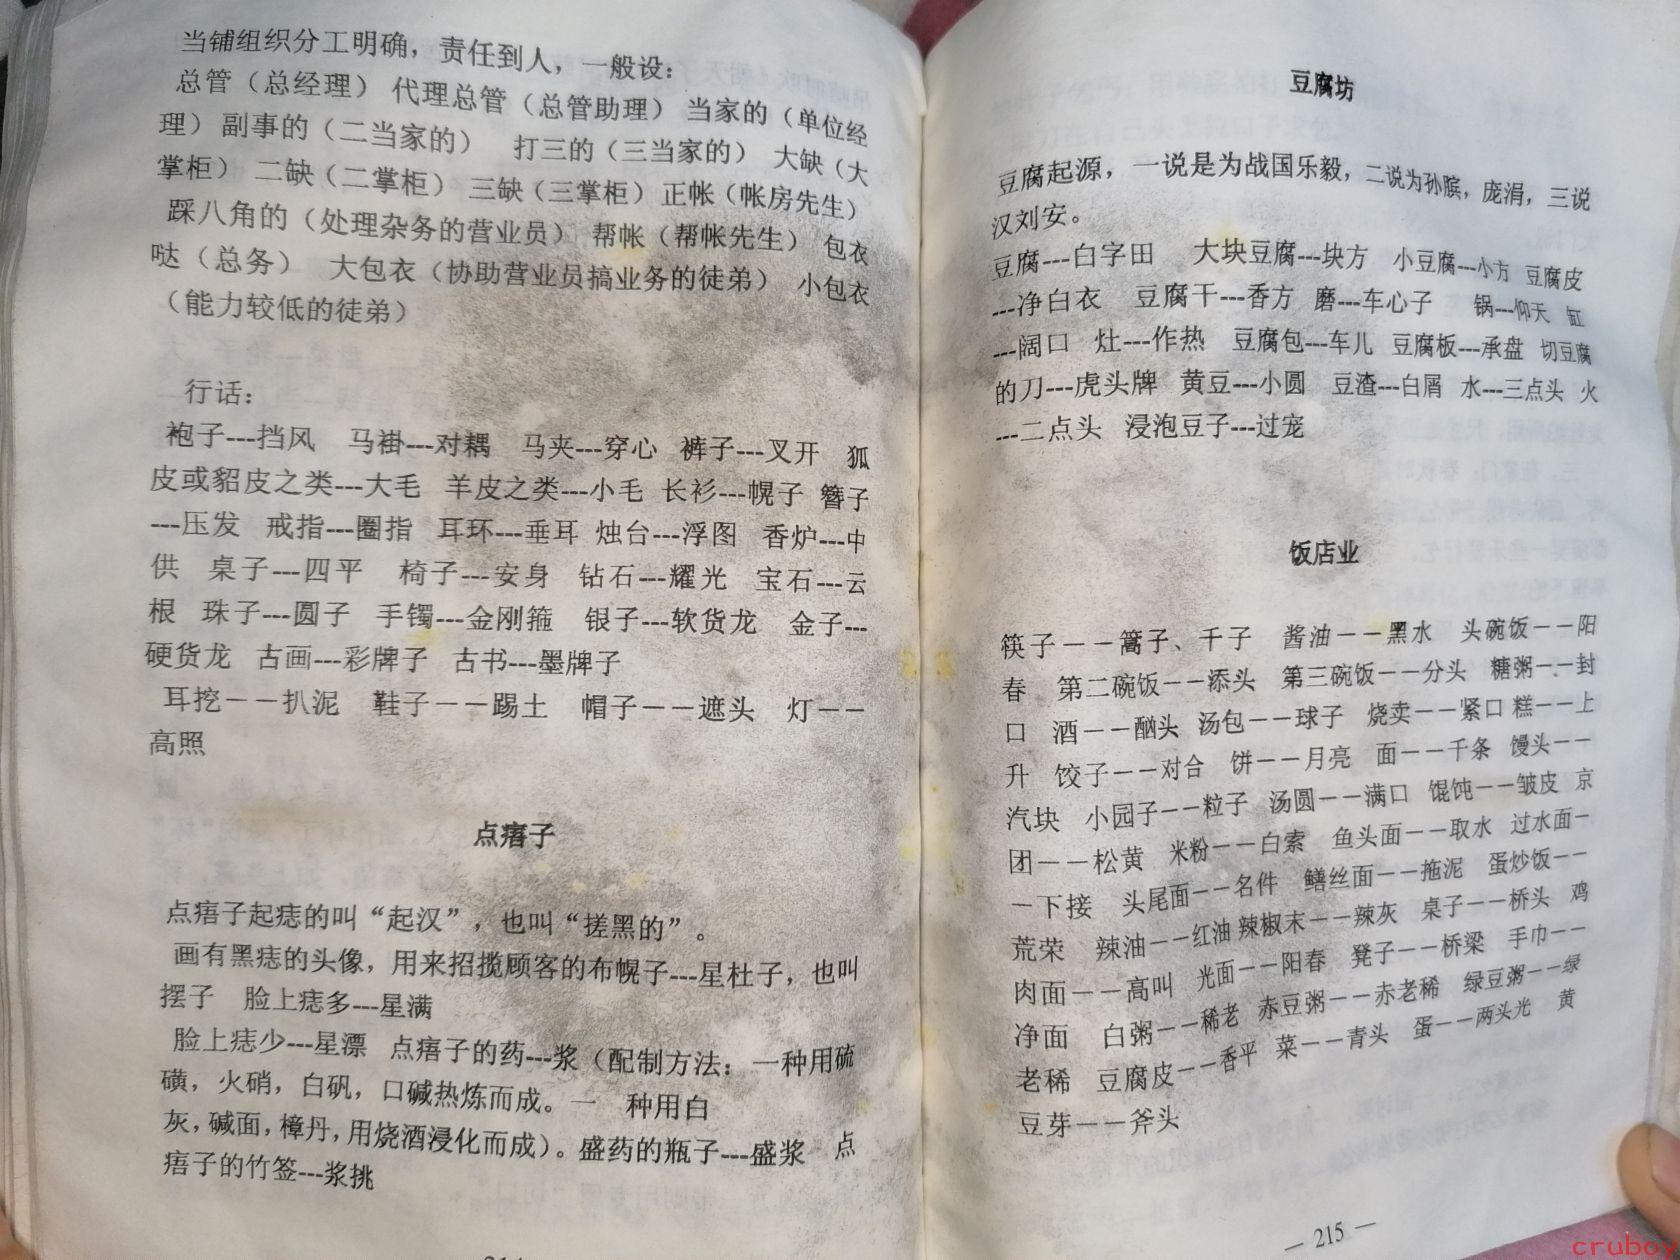 当铺组织分工明确，责任到人，一般设：
总管（总经理） 代理总管（总管助理） 当家的（单位经
理） 副事的（二当家的） 打三的（三当家的） 大缺（大
掌柜） 二缺（二掌柜） 三缺（三掌柜） 正帐（帐房先生）
踩八角的（处理杂务的营业员） 帮帐（帮帐先生） 包衣
哒（总务） 大包衣（协助营业员搞业务的徒弟） 小包衣
（能力较低的徒弟）
行话：
袍子---挡风 马褂---对耦 马夹---穿心 裤子---叉开 狐
皮或貂皮之类---大毛 羊皮之类---小毛 长衫---幌子 簪子
---压发 戒指---圈指 耳环---垂耳 烛台---浮图 香炉---中
供 桌子---四平 椅子---安身 钻石---耀光 宝石---云
根 珠子---圆子 手镯---金刚箍 银子---软货龙 金子---
硬货龙 古画---彩牌子 古书---墨牌子
耳挖－－扒泥 鞋子－－踢土 帽子－－遮头 灯－－
高照
点痦子
点痦子起痣的叫“起汉”，也叫“搓黑的”。
画有黑痣的头像，用来招揽顾客的布幌子---星杜子，也叫
摆子 脸上痣多---星满
脸上痣少---星漂 点痦子的药---浆（配制方法：一种用硫
磺，火硝，白矾，口碱热炼而成。一 种用白
灰，碱面，樟丹，用烧酒浸化而成）。盛药的瓶子---盛浆 点
痦子的竹签---浆挑
豆腐坊
豆腐起源，一说是为战国乐毅，二说为孙膑，庞涓，三说
汉刘安。
豆腐---白字田 大块豆腐---块方 小豆腐---小方 豆腐皮
---净白衣 豆腐干---香方 磨---车心子 锅---仰天 缸
---阔口 灶---作热 豆腐包---车儿 豆腐板---承盘 切豆腐
的刀---虎头牌 黄豆---小圆 豆渣---白屑 水---三点头 火
---二点头 浸泡豆子---过宠
饭店业
筷子－－篙子、千子 酱油－－黑水 头碗饭－－阳
春 第二碗饭－－添头 第三碗饭－－分头 糖粥－－封
口 酒－－酗头 汤包－－球子 烧卖－－紧口 糕－－上
升 饺子－－对合 饼－－月亮 面－－千条 馒头－－
汽块 小园子－－粒子 汤圆－－满口 馄饨－－皱皮 京
团－－松黄 米粉－－白索 鱼头面－－取水 过水面－
－下接 头尾面－－名件 鳝丝面－－拖泥 蛋炒饭－－
荒荣 辣油－－红油 辣椒末－－辣灰 桌子－－桥头 鸡
肉面－－高叫 光面－－阳春 凳子－－桥梁 手巾－－
净面 白粥－－稀老 赤豆粥－－赤老稀 绿豆粥－－绿
老稀 豆腐皮－－香平 菜－－青头 蛋－－两头光 黄
豆芽－－斧头
— 215 —
cruboy